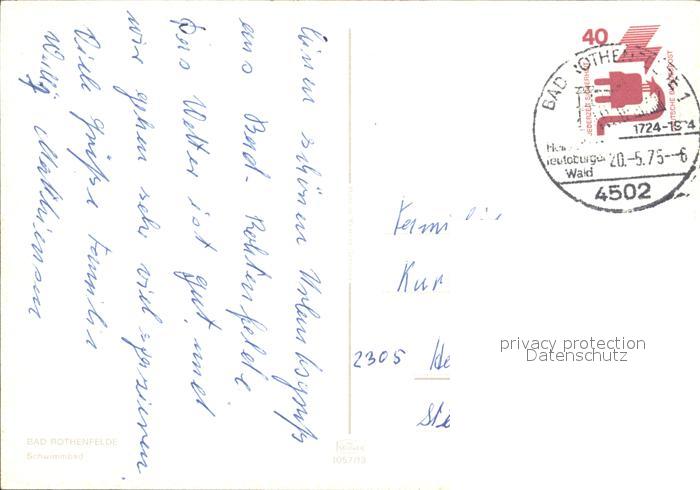 Einen schönen Urlaubsgruß
aus Bad-Rothenfelde
Das Wetter ist gut und
wir gehen sehr viel spazieren.
Viele Grüße Familie
Willy Matthiensen
BAD ROTHENFELDE
Schwimmbad
1057/13
40
JEDERZEIT SICHERHEIT
DEUTSCHE BUNDESPOST
BAD ROTHENFELDE 1
1724-1974
Teutoburger
Wald
20.-5.75--6
4502
Familie
Kur
2305 He
privacy protection
Datenschutz